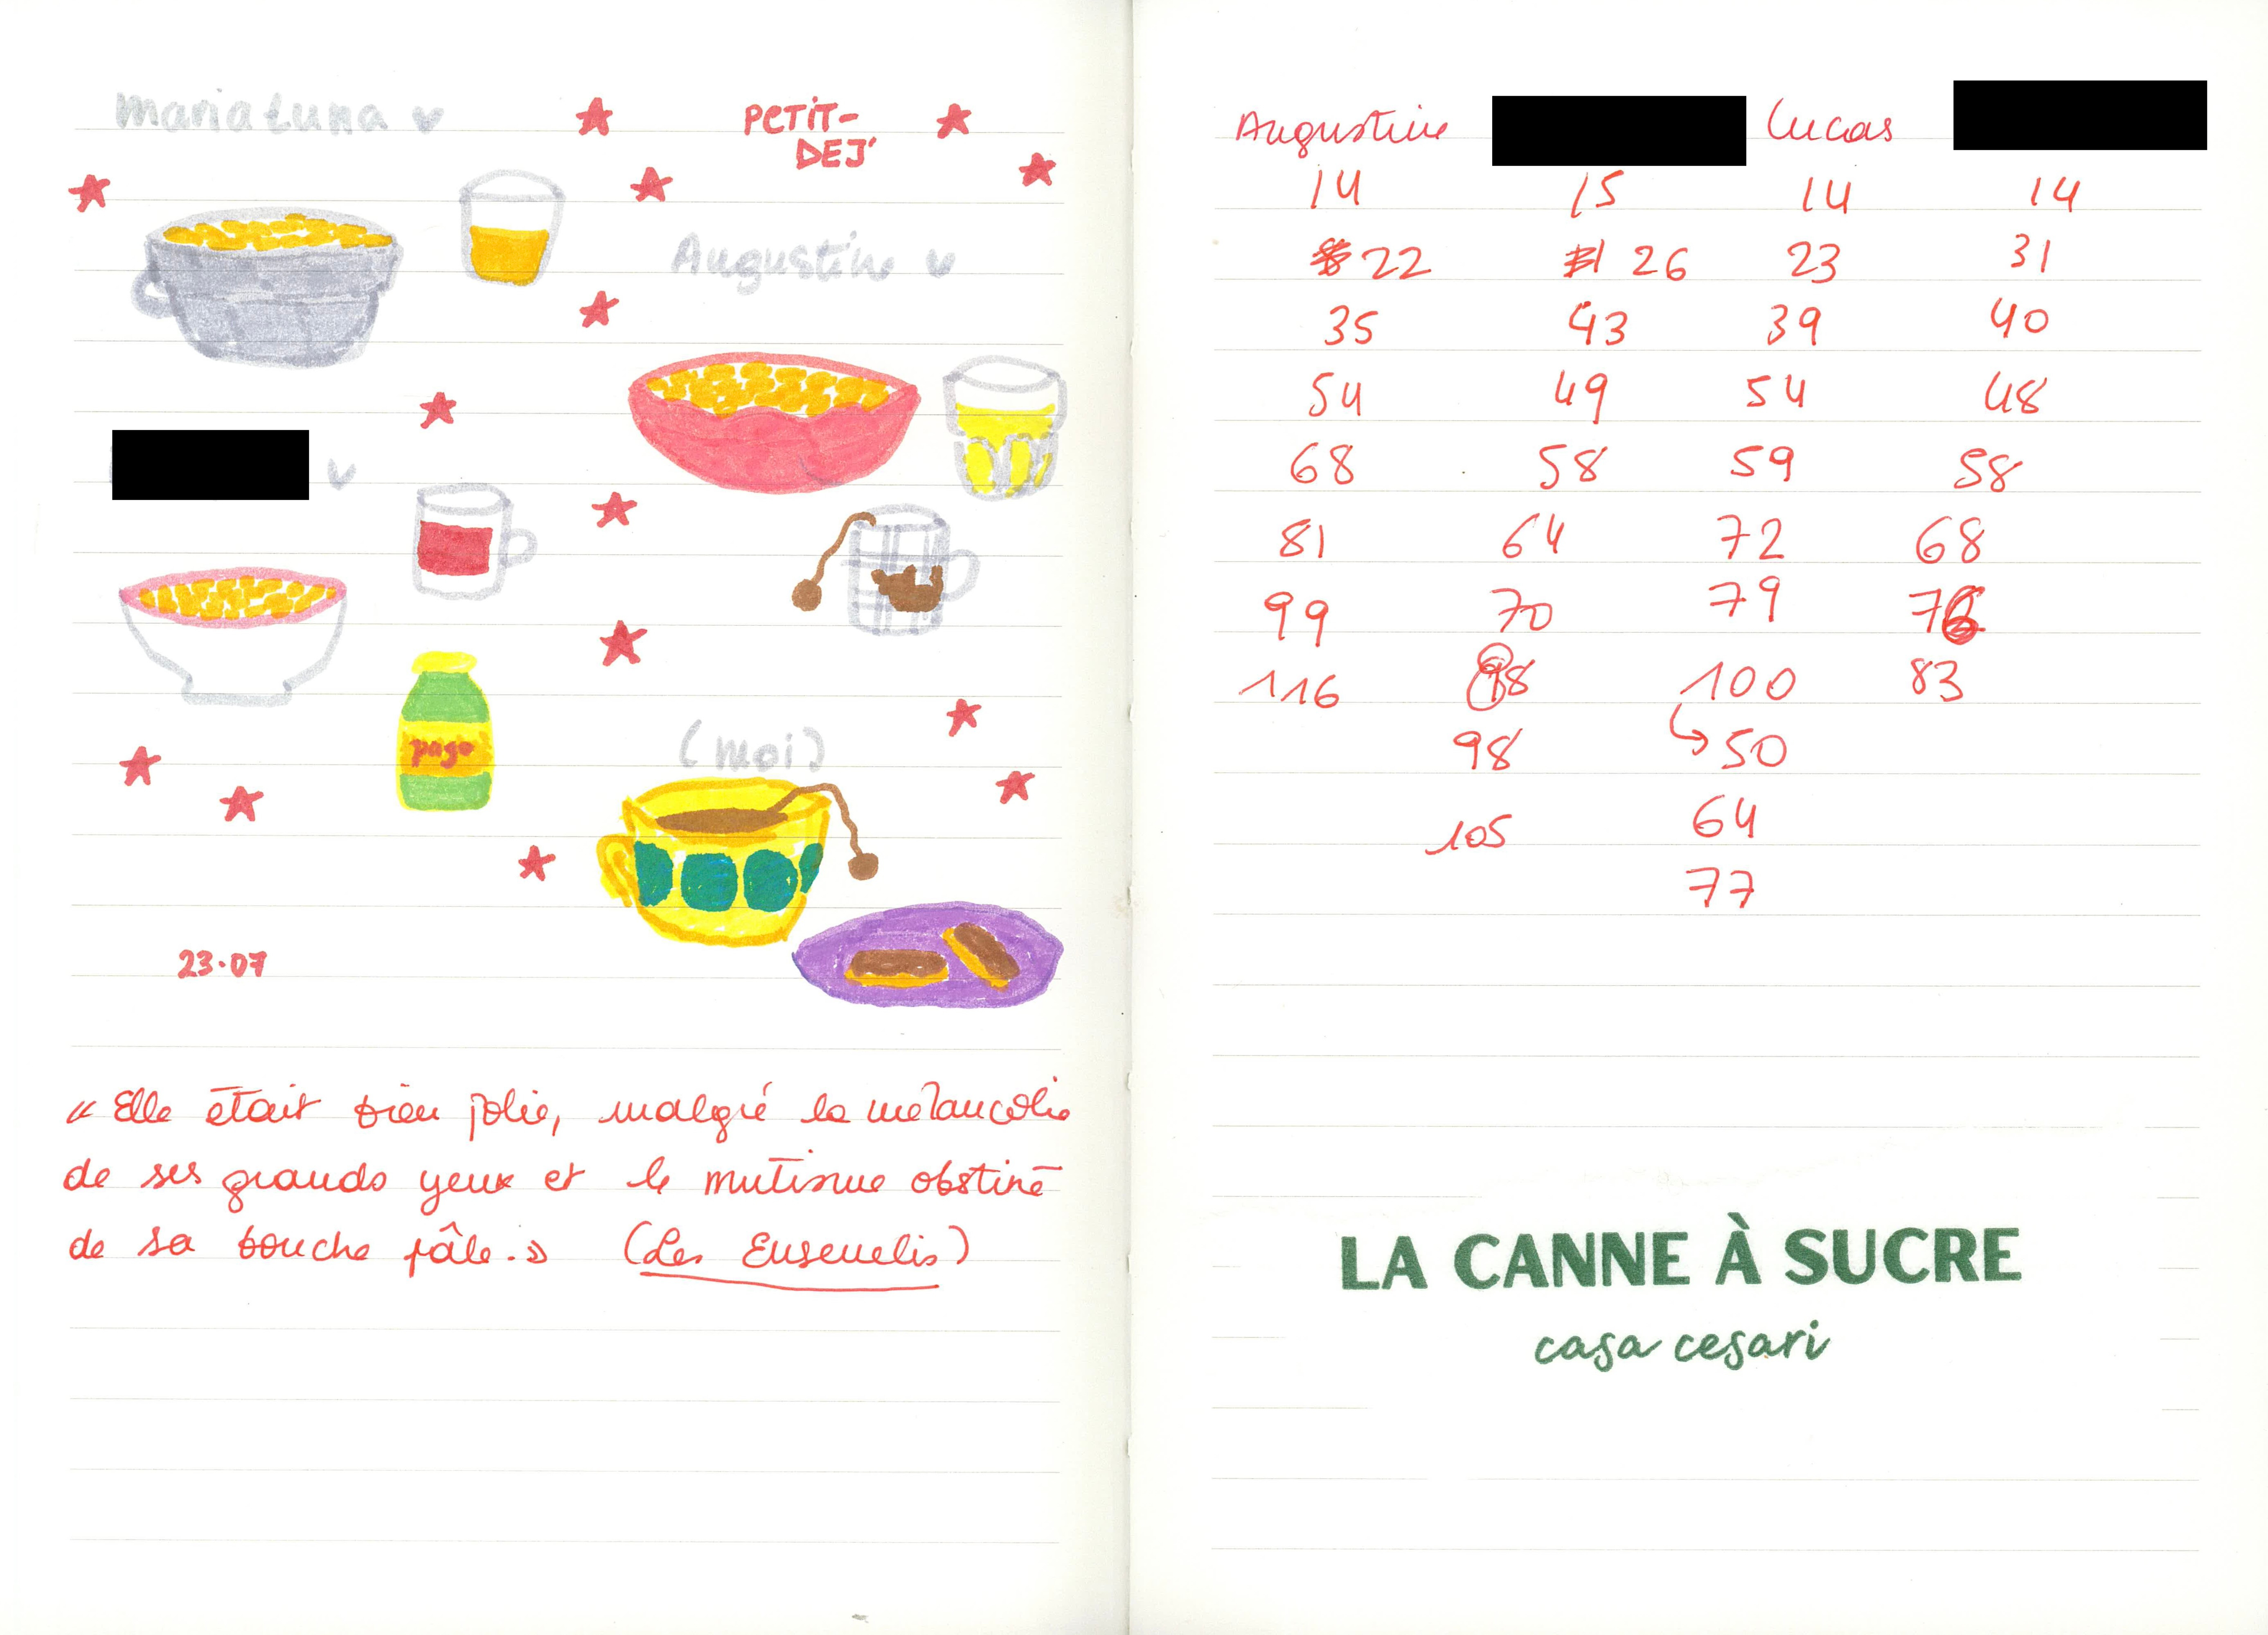 Maria Luna
PETIT-
DEJ'
Augustine
pago
(moi)
23.07
« Elle était bien jolie, malgré la mélancolie
de ses grands yeux et le mutisme obstiné
de sa bouche pâle. » (Les Ensevelis)
Augustine Lucas
14 15 14 14
22 26 23 31
35 43 39 40
54 49 54 48
68 58 59 58
81 64 72 68
99 70 79
116 98 100 83
98 50
105 64
77
LA CANNE À SUCRE
casa cesari